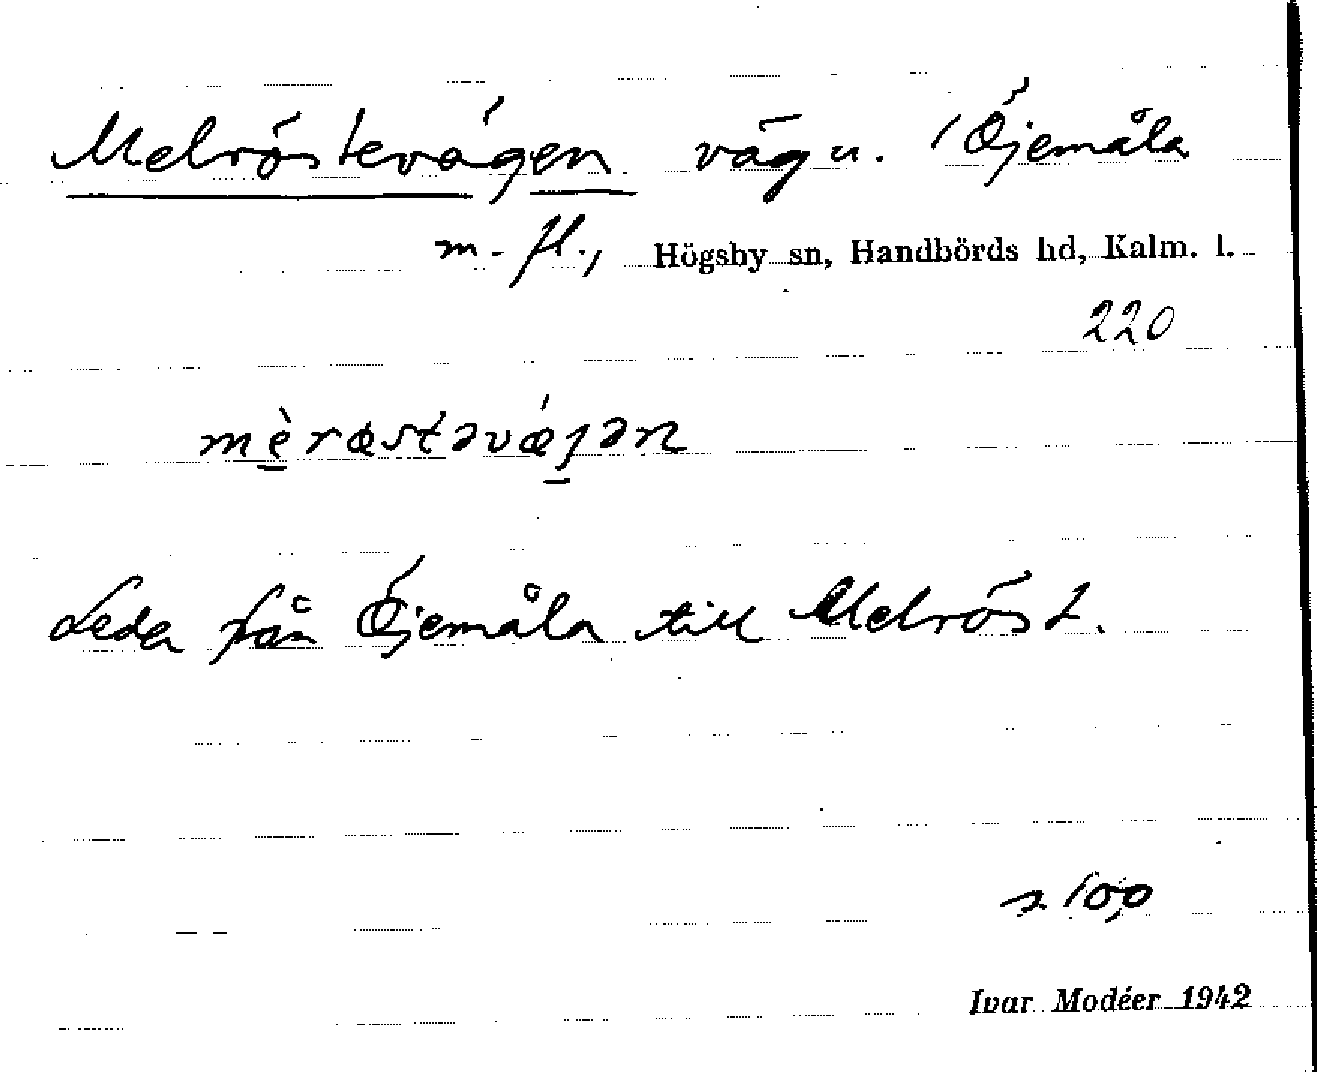 Melröstevägen väg u. Öjemåla
m. fl., Högsby sn, Handbörds hd, Kalm. l.
220
mèrœstəvǽjən
Leder från Öjemåla till Melröst.
100
Ivar Modéer 1942